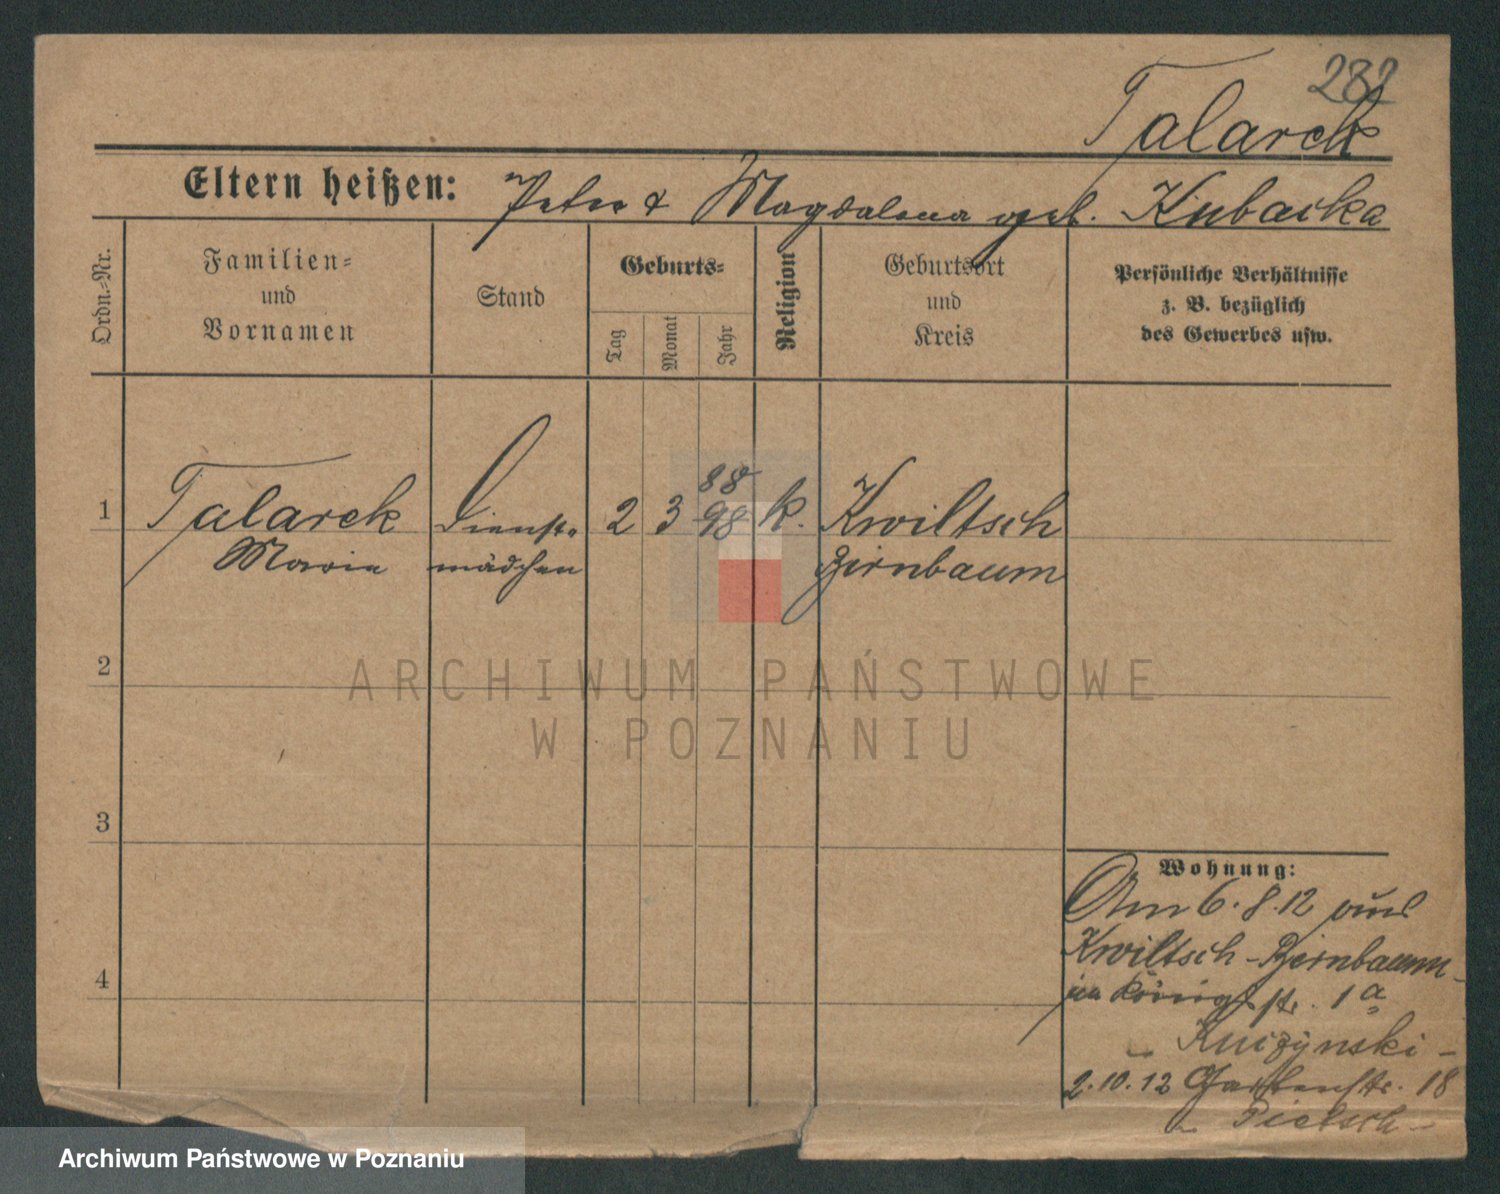 282
Talarek
Eltern heißen: Peter & Magdalena geb. Kubacka
Ordn.-Nr.
Familien- und Vornamen
Stand
Geburts-
Tag
Monat
Jahr
Religion
Geburtsort und Kreis
Persönliche Verhältnisse
z. B. bezüglich
des Gewerbes usw.
88
1 Talarek Dienst- 2 3 98 k. Kwiltsch
Marie mädchen Birnbaum
2
ARCHIWUM PAŃSTWOWE
W POZNANIU
3
Wohnung:
Am 6.8.12 aus
Kwiltsch-Birnbaum
in Königstr. 1a
4
2.10.12 Gartenstr. 18
Archiwum Państwowe w Poznaniu